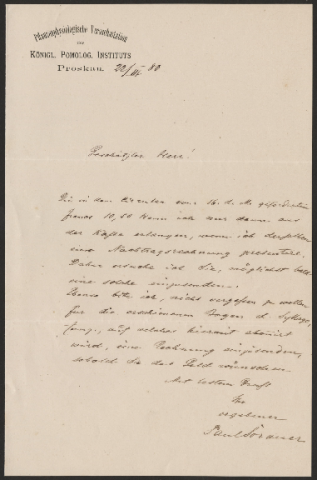 Pflanzenphysiologische Versuchsstation
des
KÖNIGL. POMOLOG. INSTITUTS
Proskau. 22/ 80
Geschätzter Herr!
Die in dem Circular vom 16. d. M. geforderten
10, 50 kann ich nur dann aus
der Kasse erlangen, wenn ich derselben
eine Nachtragsrechnung präsentire.
Daher ersuche ich Sie, möglichst bald
eine solche einzusenden.
Ebenso bitte ich, nicht vergessen zu wollen
für die erschienenen Bogen d. Sylloge
fung., auf welche hiermit abonnirt
wird, eine Rechnung einzusenden,
sobald Sie das Geld wünschen.
Mit bestem Gruß
Ihr
ergebener
Paul Sorauer